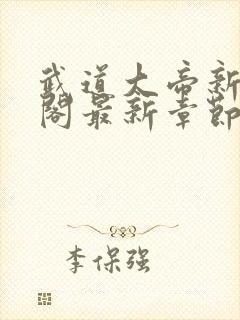 武道大帝新
阁最新章节
李保强